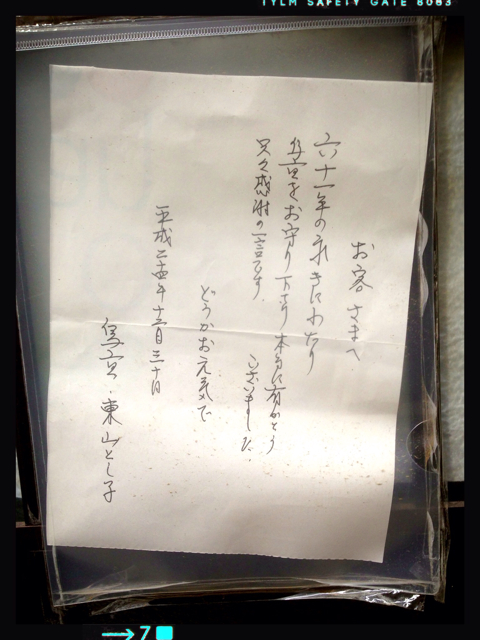 TYLM SAFETY GATE 6083
お客さまへ
六十一年の永きにわたり
をお守り下さり本当に有がとう
ございました.
只々感謝の一言です.
どうかお元気で
平成二十四年十二月三十日
東山とし子
→7